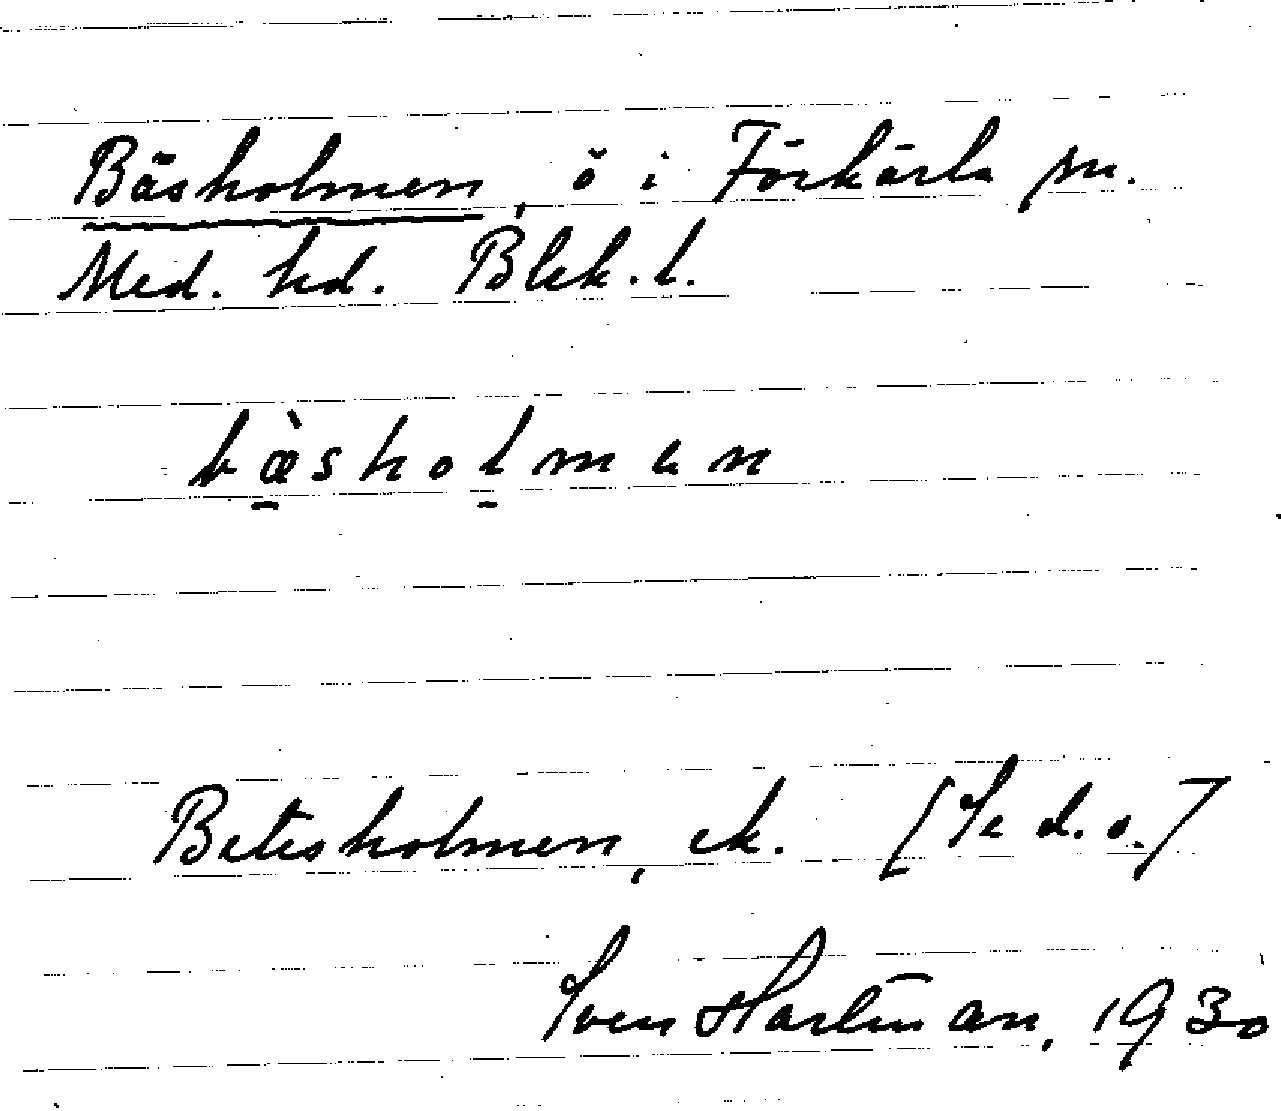 Bäsholmen, ö i Förkärla sn.
Med. hd. Blek. l.
bæ̠̀shol̠mən
Betesholmen, ek. [Se d.o.]
Sven Hartman, 1930